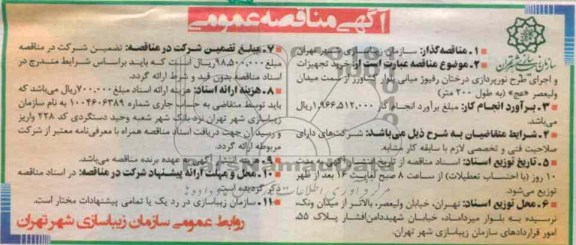 آگهی مناقصه عمومی
۱- مناقصه‌گذار: سازمان زیباسازی شهر تهران
۲- موضوع مناقصه عبارت است از: خرید تجهیزات
و اجرای طرح نورپردازی درختان رفیوژ میانی بلوار کشاورز از سمت میدان
ولیعصر «عج» (به طول ۲۰۰ متر)
۳- برآورد انجام کار: مبلغ برآورد انجام کار ۱,۹۶۶,۵۱۲,۰۰۰ ریال
می‌باشد.
۴- شرایط متقاضیان به شرح ذیل می‌باشد: شرکت‌های دارای
صلاحیت فنی و تخصصی لازم با سابقه کار مشابه.
۵- تاریخ توزیع اسناد: اسناد مناقصه از تاریخ انتشار به مدت
۱۰ روز (با احتساب تعطیلات) از ساعت ۸ صبح لغایت ۱۶ بعد از ظهر
توزیع می‌شود.
۶- محل توزیع اسناد: تهران، خیابان ولیعصر، بالاتر از میدان ونک،
نرسیده به بلوار میرداماد، خیابان شهیددامن‌افشار پلاک ۵۵،
امور قراردادهای سازمان زیباسازی شهر تهران.
۷- مبلغ تضمین شرکت در مناقصه: تضمین شرکت در مناقصه
مبلغ ۹۸,۵۰۰,۰۰۰ ریال است که باید براساس شرایط مندرج در
اسناد مناقصه بدون قید و شرط ارائه گردد.
۸- هزینه ارائه اسناد: هزینه ارائه اسناد مبلغ ۷۰۰,۰۰۰ ریال می‌باشد که
باید توسط متقاضی به حساب جاری شماره ۱۰۰۴۶۰۶۳۸۹ به نام سازمان
زیباسازی شهر تهران نزد بانک شهر شعبه وحید دستگردی کد ۲۲۸ واریز
و رسید آن جهت دریافت اسناد مناقصه همراه با معرفی‌نامه معتبر از شرکت
مربوطه ارائه گردد.
۹- آگهی به عهده برنده مناقصه می‌باشد.
۱۰- محل و مهلت ارائه پیشنهاد شرکت در مناقصه: در اسناد مناقصه
ذکر گردیده است.
۱۱- سازمان زیباسازی در رد یک یا تمامی پیشنهادات مختار است.
روابط عمومی سازمان زیباسازی شهر تهران